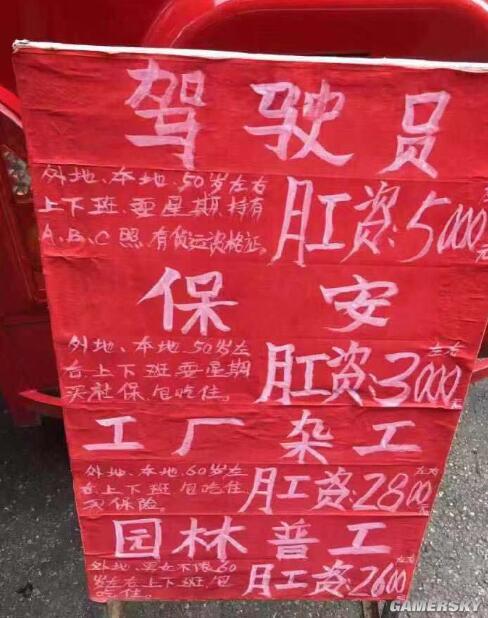 驾驶员
外地、本地、50岁左右
上下班、耍星期、持有
A、B、C照、有货运资格证。
月工资:5000元
左右
保安
外地、本地、50岁左
右上下班、耍星期
买社保、包吃住。
月工资:3000元
左右
工厂杂工
外地、本地、60岁左
右上下班、包吃住
买保险。
月工资:2800元
左右
园林普工
外地、男女不限、60
岁左右上下班、包
吃住。
月工资:2600元
左右
GAMERSKY